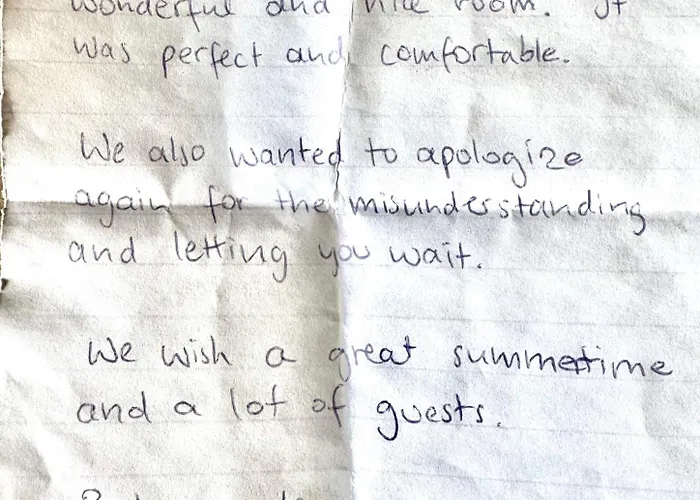 wonderful and nice room. It
was perfect and comfortable.
We also wanted to apologize
again for the misunderstanding
and letting you wait.
We wish a great summertime
and a lot of guests.